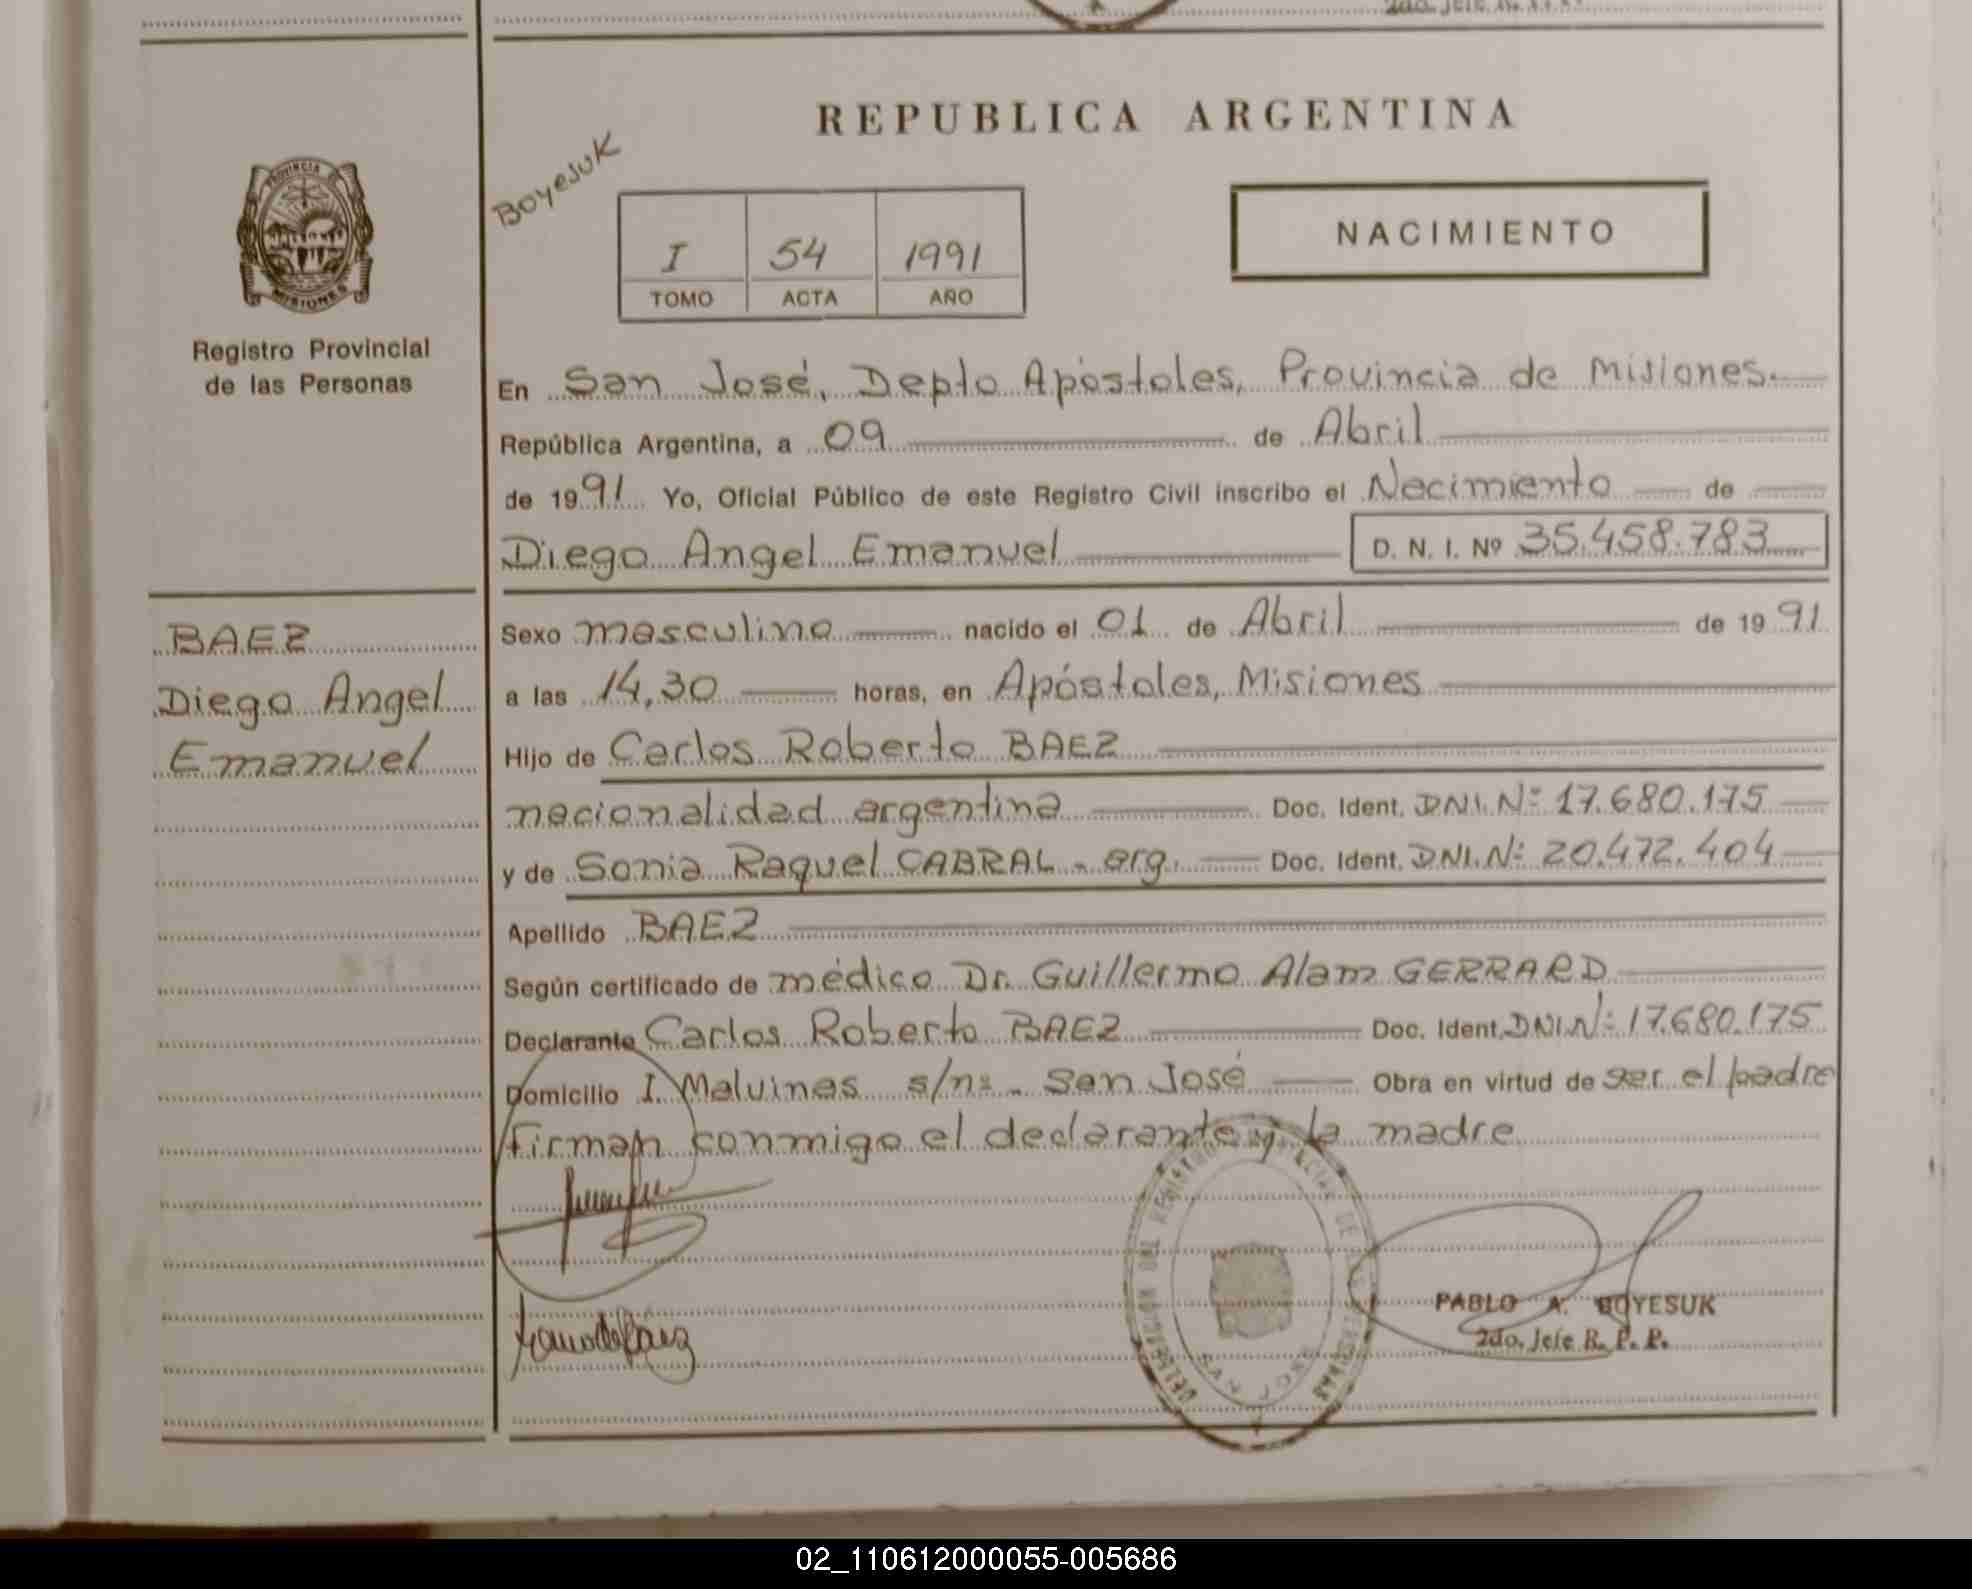 2do. Jefe R. P. P.
REPUBLICA ARGENTINA
Boyesuk
NACIMIENTO
I 54 1991
TOMO ACTA AÑO
PROVINCIA
MISIONES
Registro Provincial
de las Personas
En San José, Depto Apóstoles, Provincia de Misiones.
República Argentina, a 09 de Abril
de 1991 Yo, Oficial Público de este Registro Civil inscribo el Nacimiento de
Diego Angel Emanuel D. N. I. Nº 35.458.783
BAEZ
Diego Angel
Emanuel
Sexo masculino nacido el 01 de Abril de 1991
a las 14,30 horas, en Apóstoles, Misiones
Hijo de Carlos Roberto BAEZ
nacionalidad argentina Doc. Ident. DNI.Nº 17.680.175
y de Sonia Raquel CABRAL - arg. Doc. Ident. DNI.Nº 20.472.404
Apellido BAEZ
Según certificado de médico Dr. Guillermo Alam GERRARD
Declarante Carlos Roberto BAEZ Doc. Ident. DNI.Nº 17.680.175
Domicilio I. Malvinas s/nº - San José Obra en virtud de ser el padre
Firman conmigo el declarante y la madre
DELEGACION DEL REGISTRO PROVINCIAL DE LAS PERSONAS
SAN JOSE
PABLO A. BOYESUK
2do. Jefe R. P. P.
02_110612000055-005686